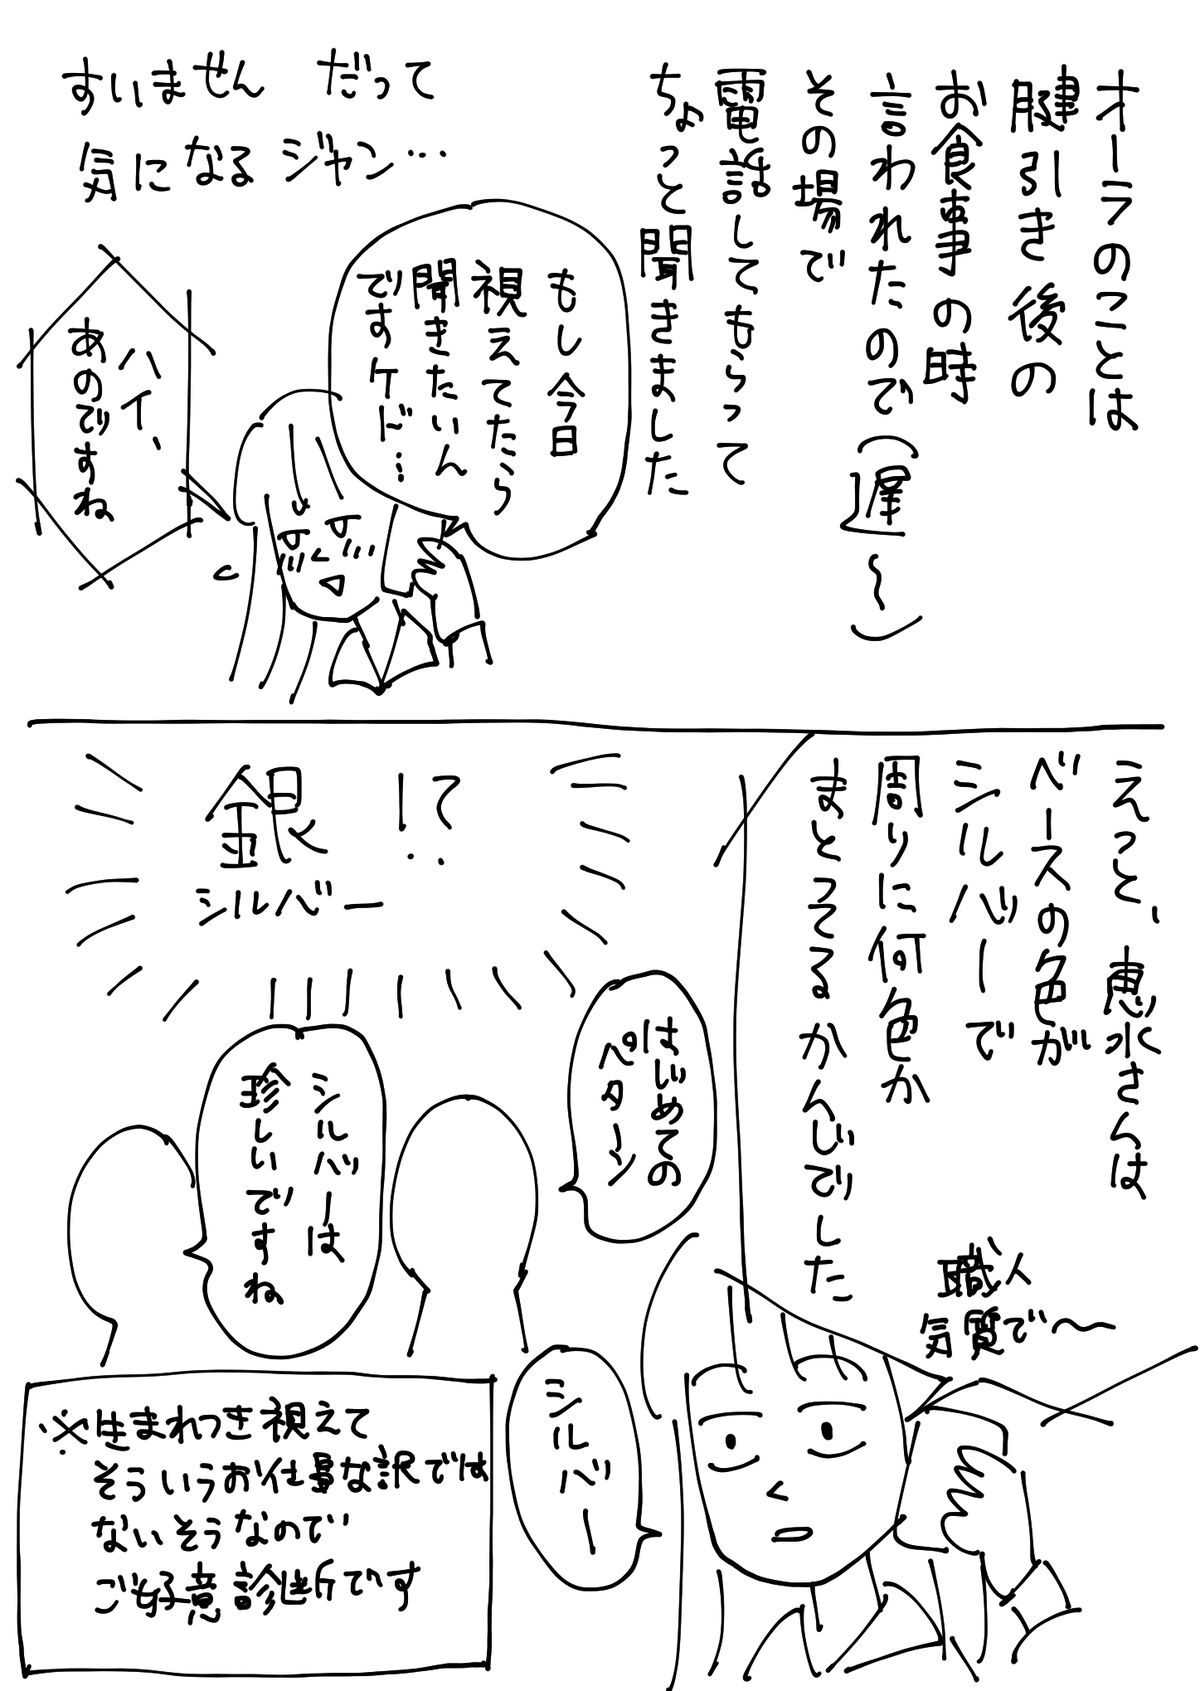 オーラのことは
腱引き後の
お食事の時
言われたので(遅〜)
その場で
電話してもらって
ちょっと聞きました
すいません だって
気になるジャン…
もし今日
視えてたら
聞きたいん
ですケド…
ハイ、
あのですね
えっと、恵水さんは
ベースの色が
シルバーで
周りに何色か
まとってるかんじでした
職人
気質で〜
銀!?
シルバー
はじめての
パターン
シルバーは
珍しいですね
シルバー
※生まれつき視えて
そういうお仕事な訳では
ないそうなので
ご好意診断です